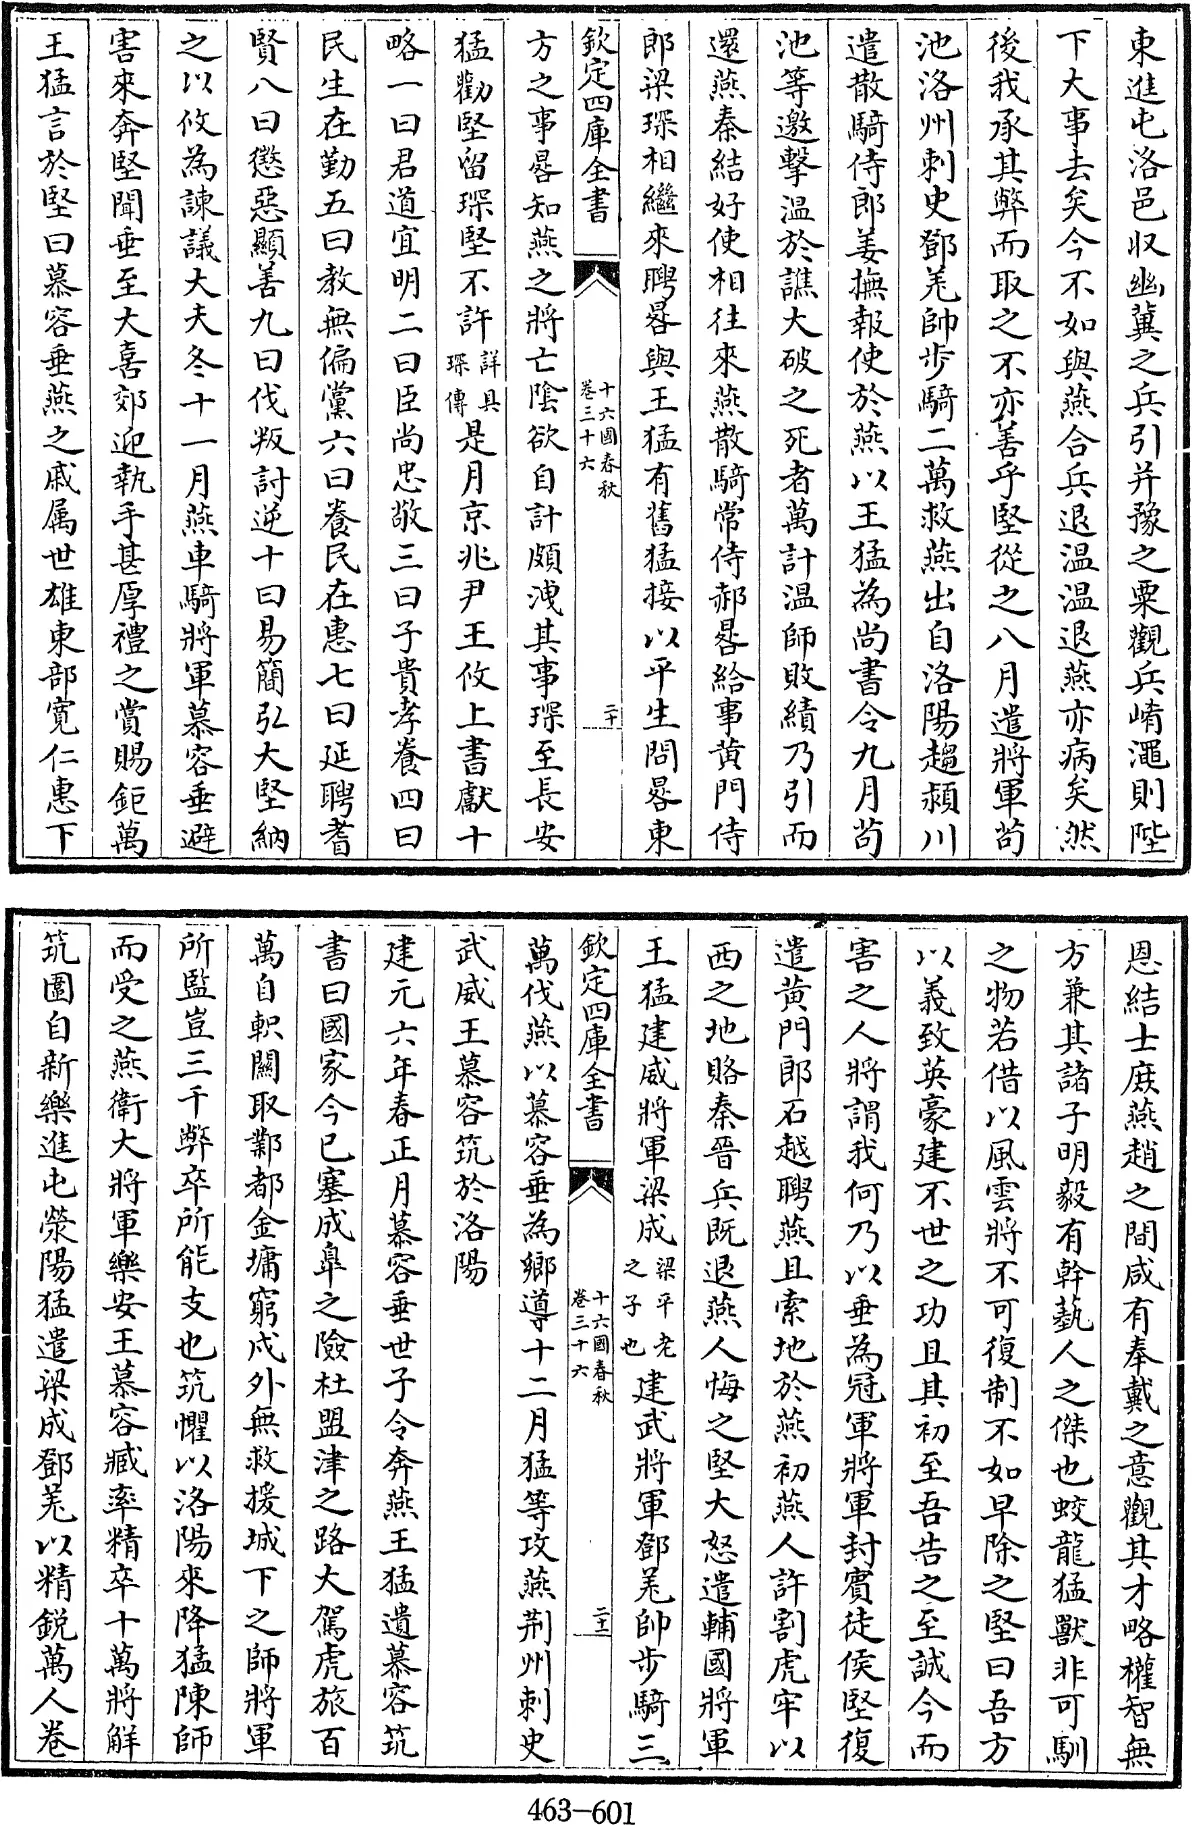 東進屯洛邑収幽冀之兵引并豫之粟觀兵崤澠則陛
下大事去矣今不如與燕合兵退温温退燕亦病矣然
後我承其弊而取之不亦善乎堅從之八月遣將軍苟
池洛州刺史鄧羌帥步騎二萬救燕出自洛陽趨潁川
遣散騎侍郎姜撫報使於燕以王猛為尚書令九月苟
池等邀擊温於譙大破之死者萬計温師敗績乃引而
還燕秦結好使相往來燕散騎常侍郝晷給事黄門侍
郎梁琛相繼來聘晷與王猛有舊猛接以平生問晷東
欽定四庫全書
十六國春秋
卷三十六
二十
方之事晷知燕之將亡陰欲自計頗洩其事琛至長安
猛勸堅留琛堅不許詳具琛傳是月京兆尹王攸上書獻十
略一曰君道宜明二曰臣尚忠敬三曰子貴孝養四曰
民生在勤五曰教無偏黨六曰養民在惠七曰延聘耆
賢八曰懲惡顯善九曰伐叛討逆十曰易簡弘大堅納
之以攸為諫議大夫冬十一月燕車騎將軍慕容垂避
害來奔堅聞垂至大喜郊迎執手甚厚禮之賞賜鉅萬
王猛言於堅曰慕容垂燕之戚属世雄東部寛仁惠下
恩結士庶燕趙之間咸有奉戴之意觀其才略權智無
方兼其諸子明毅有幹藝人之傑也蛟龍猛獸非可馴
之物若借以風雲將不可復制不如早除之堅曰吾方
以義致英豪建不世之功且其初至吾告之至誠今而
害之人將謂我何乃以垂為冠軍將軍封賓徒侯堅復
遣黄門郎石越聘燕且索地於燕初燕人許割虎牢以
西之地賂秦晉兵既退燕人悔之堅大怒遣輔國將軍
王猛建威將軍梁成梁平老之子也建武將軍鄧羌帥步騎三
欽定四庫全書
十六國春秋
卷三十六
二十一
萬伐燕以慕容垂為鄉導十二月猛等攻燕荆州刺史
武威王慕容筑於洛陽
建元六年春正月慕容垂世子令奔燕王猛遺慕容筑
書曰國家今已塞成皐之險杜盟津之路大駕虎旅百
萬自軹關取鄴都金墉窮戍外無救援城下之師將軍
所監豈三千弊卒所能支也筑懼以洛陽來降猛陳師
而受之燕衛大將軍樂安王慕容臧率精卒十萬將解
筑圍自新樂進屯滎陽猛遣梁成鄧羌以精鋭萬人卷
463-601